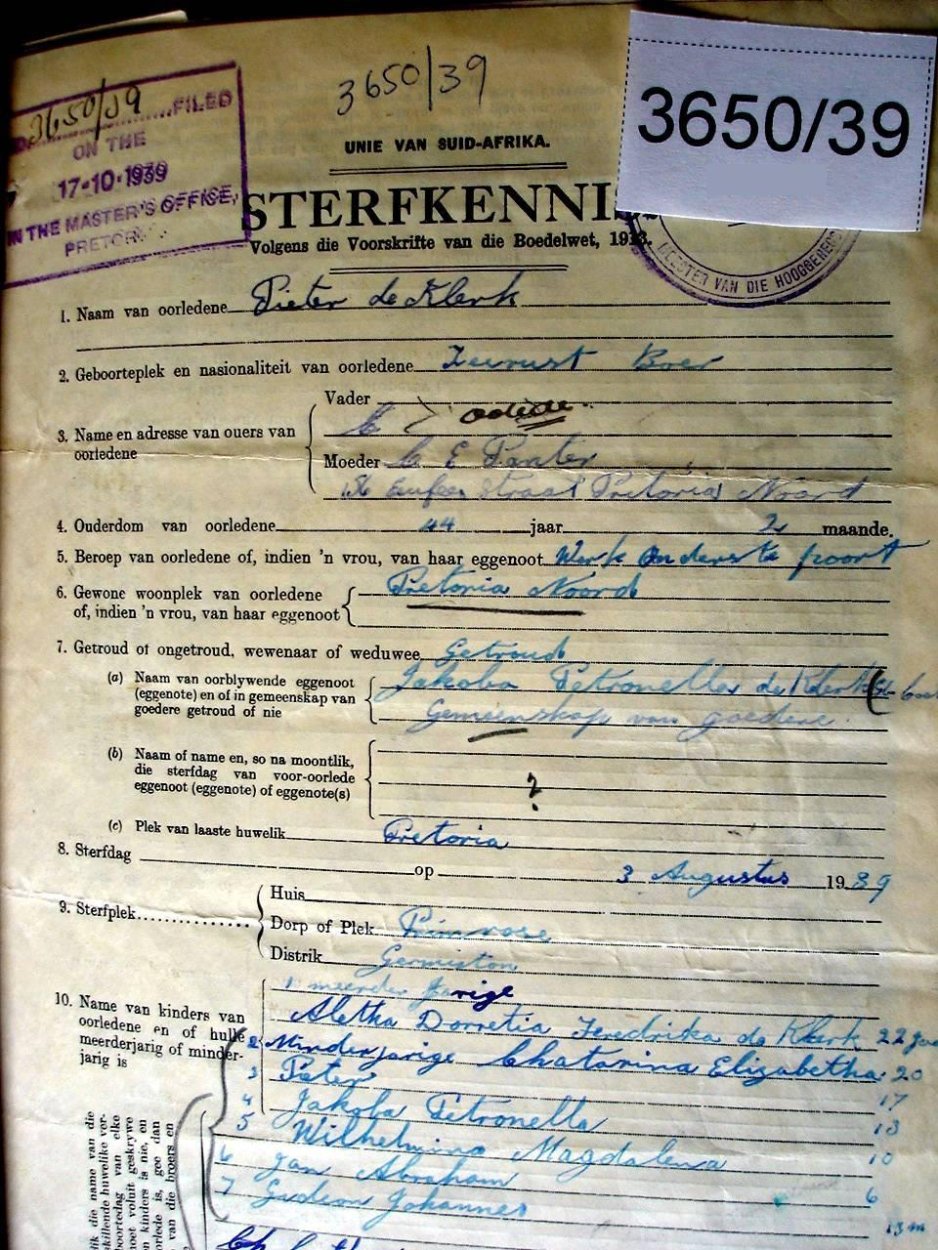 3650/39 FILED
ON THE
17-10-1939
IN THE MASTER'S OFFICE,
PRETORIA
3650/39
3650/39
UNIE VAN SUID-AFRIKA.
STERFKENNIS
Volgens die Voorskrifte van die Boedelwet, 1913.
MEESTER VAN DIE HOOGGEREGS
1. Naam van oorledene Pieter de Klerk
2. Geboorteplek en nasionaliteit van oorledene Zeerust Boer
3. Name en adresse van ouers van oorledene
Vader
Moeder C E Panter
Straat Pretoria Noord
4. Ouderdom van oorledene 44 jaar 2 maande.
5. Beroep van oorledene of, indien 'n vrou, van haar eggenoot Werk Onderste poort
6. Gewone woonplek van oorledene Pretoria Noord
of, indien 'n vrou, van haar eggenoot
7. Getroud of ongetroud, wewenaar of weduwee Getroud
(a) Naam van oorblywende eggenoot Jakoba Petronella de Klerk
(eggenote) en of in gemeenskap van
goedere getroud of nie Gemeenskap van goedere.
(b) Naam of name en, so na moontlik,
die sterfdag van voor-oorlede ?
eggenoot (eggenote) of eggenote(s)
(c) Plek van laaste huwelik Pretoria
8. Sterfdag op 3 Augustus 1939
9. Sterfplek
Huis
Dorp of Plek Primrose
Distrik Germiston
10. Name van kinders van
oorledene en of hulle
meerderjarig of minder-
jarig is
1 meerder jarige
Aletha Dorretia Fredrika de Klerk 22
2 Minderjarige Chatarina Elizabetha 20
3 Pieter 17
4 Jakoba Petronella 13
5 Wilhelmina Magdalena 10
6 Jan Abraham 6
7 Gideon Johannes 13 m